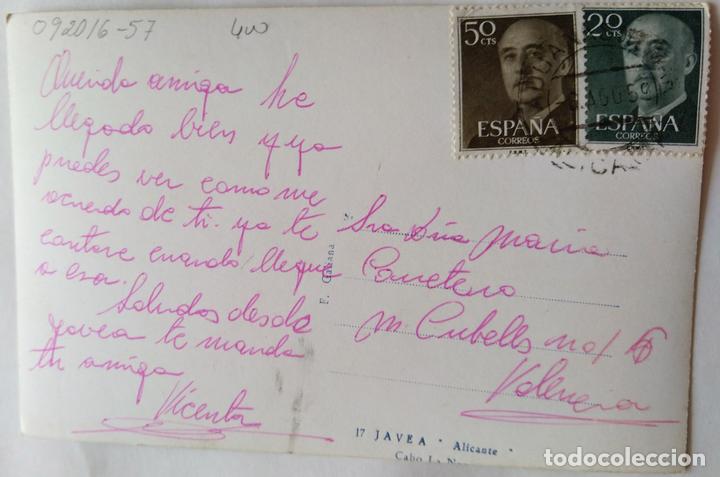 092016-57
400
50 CTS
ESPAÑA
CORREOS
20 CTS
ESPAÑA
CORREOS
AGO 59
Querida amiga he
llegado bien y ya
puedes ver como me
acuerdo de ti. ya te
contare cuando llegue
a esa.
Saludos desde
Javea te manda
tu amiga
Vicenta
Sra Dña Maria
Carretero
M. Cubells no/ 6
Valencia
F. Galiana
17 JAVEA · Alicante ·
Cabo La
todocoleccion
todocoleccion.net